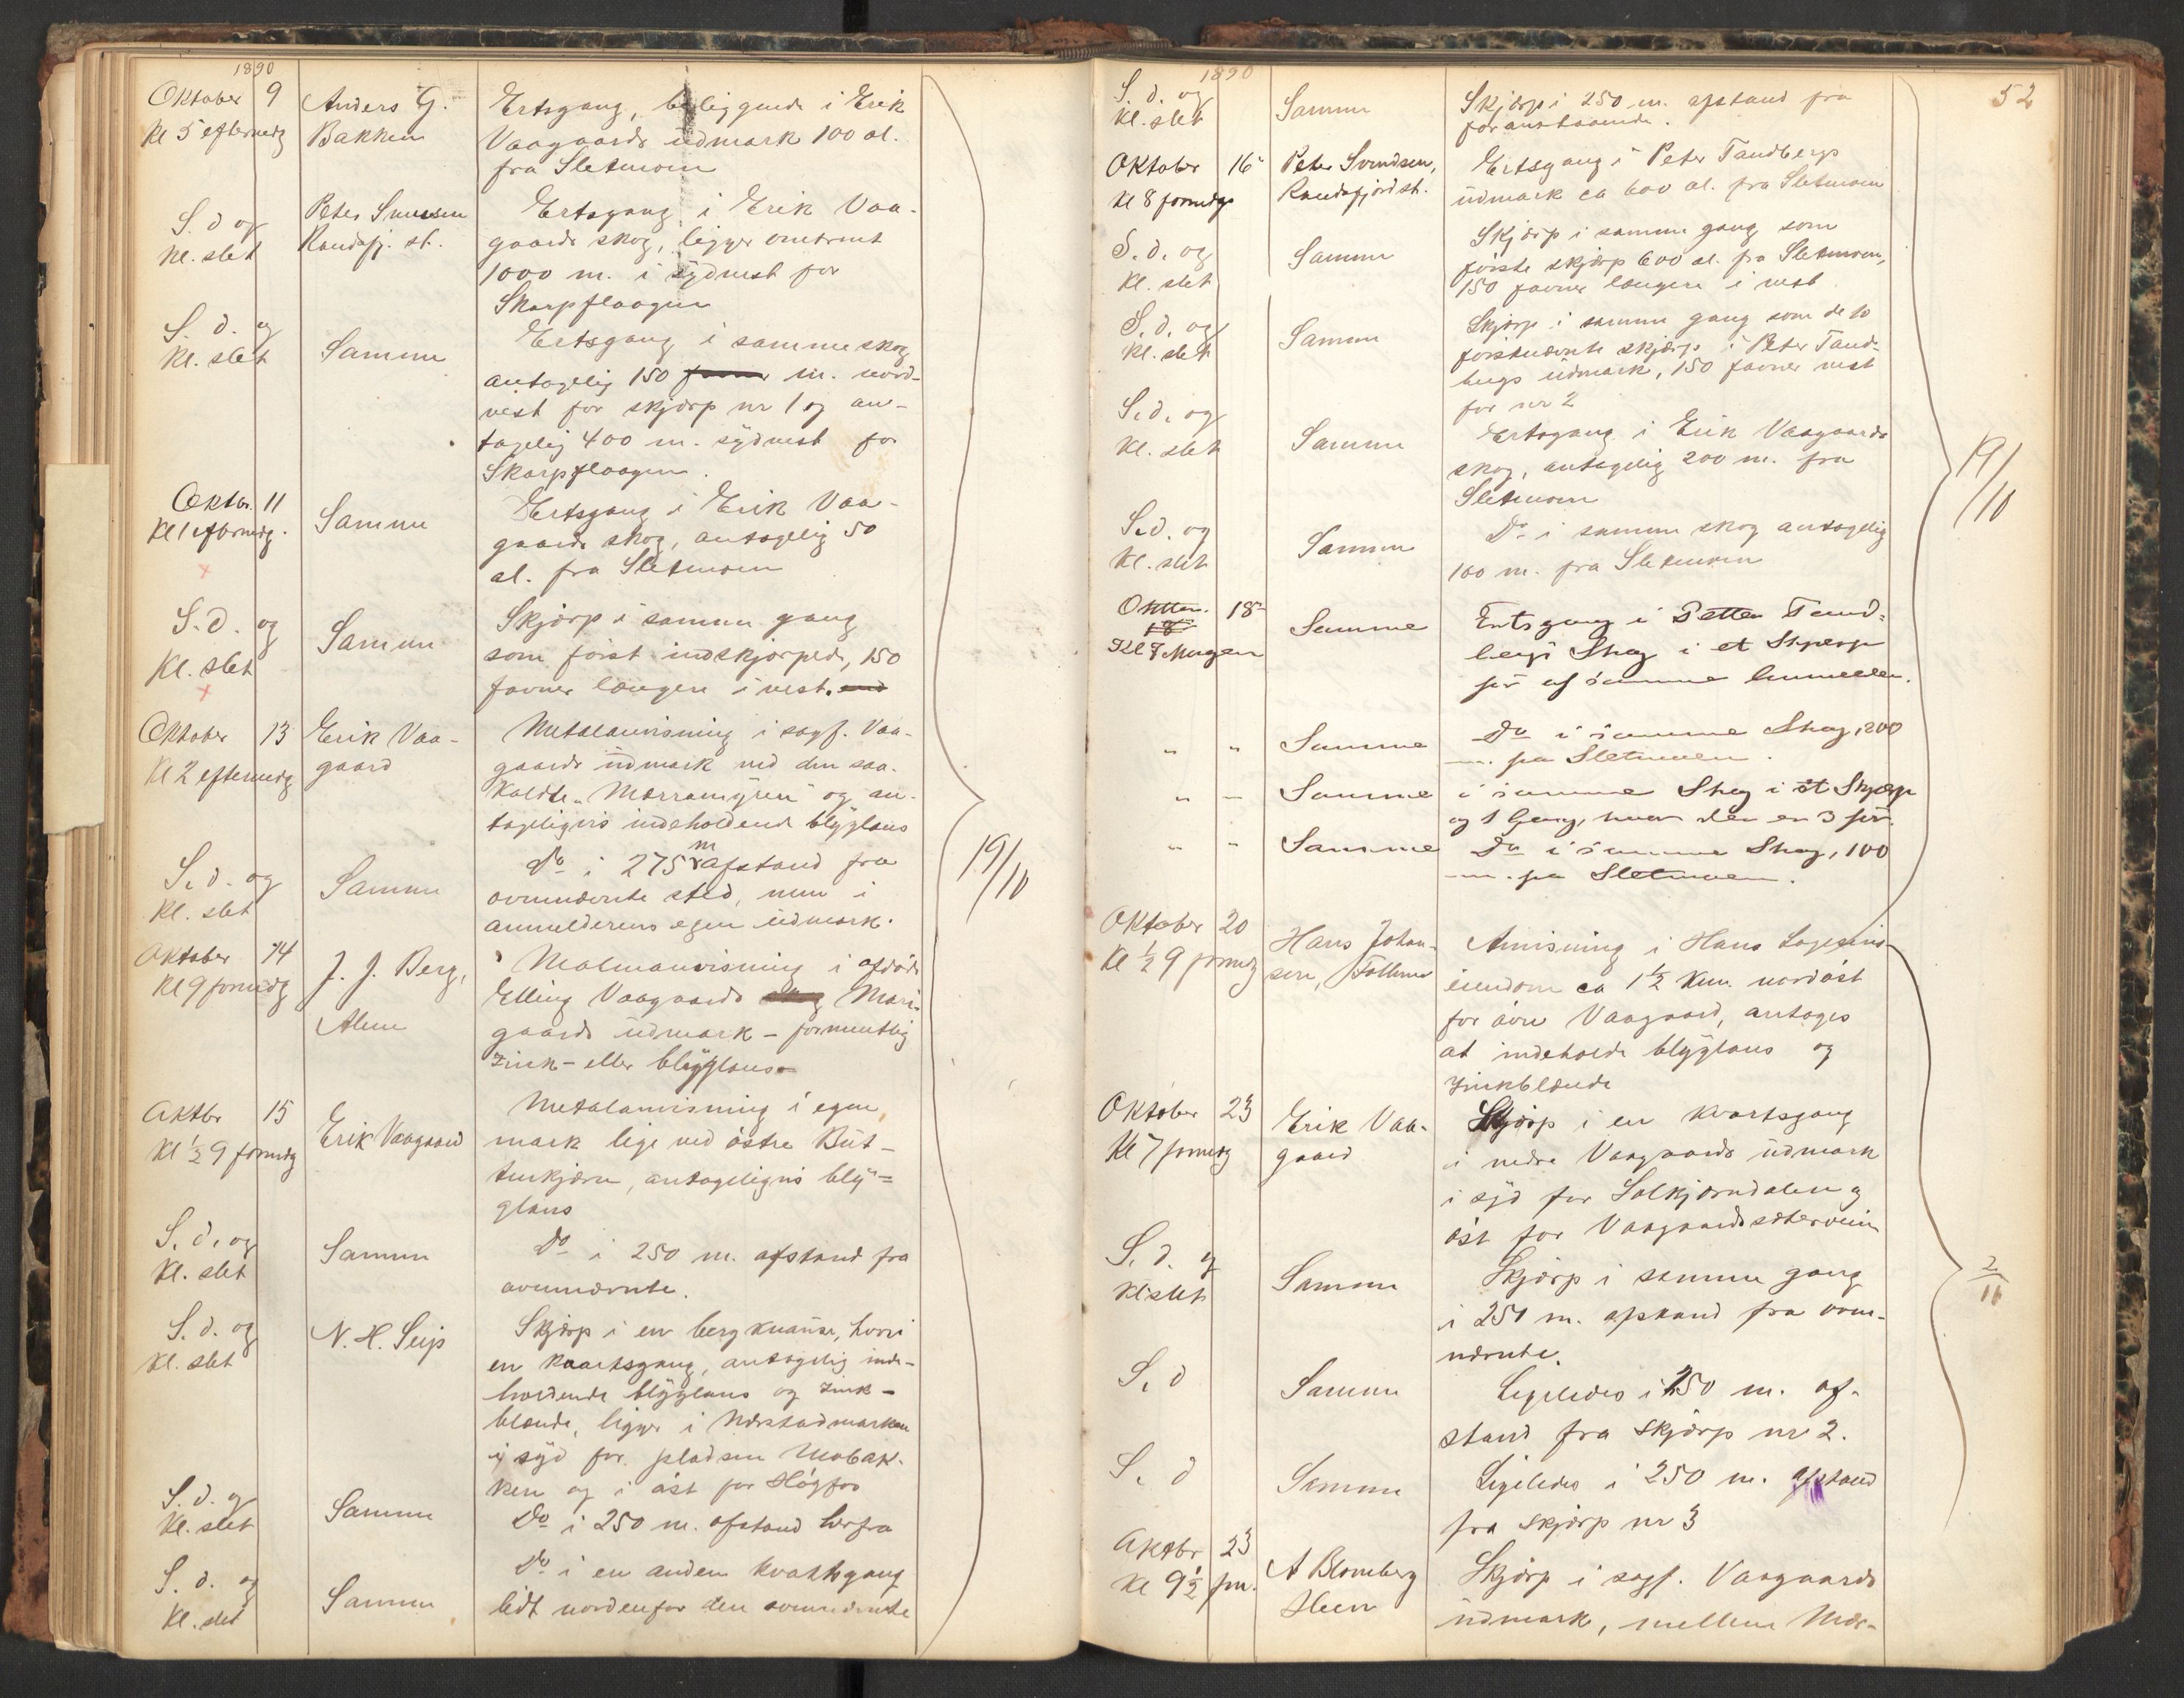 1890
Oktober 9 Anders G. Ertsgang, beliggende i Erik
Kl 5 eftermdg Bakken Vaagaards udmark 100 al.
fra Sletmoen
S. d og Peter Ertsgang i Erik Vaa-
kl. slet Randsfj. st. gaards skog, ligger omtrent
1000 m. i sydvest for
Skarpflaagen
S. d. og Samme Ertsgang i samme skog
Kl. slet antagelig 150 m. nord-
vest for skjærp nr 1 og an-
tagelig 400 m. sydvest for
Skarpflaagen.
Oktbr. 11 Samme Ertsgang i Erik Vaa-
Kl 1 eftermdg. gaards skog, antagelig 50
al. fra Sletmoen
S. d. og Samme Skjærp i samme gang
Kl. slet som først indskjærpede, 150
favner længere i vest. end
Oktober 13 Erik Vaa- Metalanvisning i sagf. Vaa-
Kl 2 eftermdg gaard gaards udmark ved den saa-
kaldte "Mærramyren" og an-
tageligvis indeholdende blyglans
S. d. og Samme Do i 275 m afstand fra
Kl. slet ovennævnte sted, men i
anmelderens egen udmark.
19/10
Oktober 14 J. J. Berg, Malmanvisning i afdøde
Kl 9 formdg Elling Vaagaards skog Mari-
Alm gaards udmark - formentlig
zink- eller blyglans
Oktbr 15 Erik Vaagaard Metalanvisning i egen
Kl ½ 9 formdg mark lige ved østre Büt-
tenkjern, antageligvis bly-
glans
S. d. og Samme Do i 250 m. afstand fra
Kl. slet ovennævnte.
S. d. og N. H. Seip Skjærp i en bergknause, hvori
kl. slet en kvartsgang, antagelig inde-
holdende blyglans og zink-
blende, ligger i Nærstadmarken
i syd for pladsen Mobak-
ken og i øst for Høgfos
S. d. og Samme Do i 250 m. afstand herfra
Kl. slet
S. d. og Samme Do i en anden kvartsgang
Kl. slet lidt nordenfor den ovennævnte
1890
52
S. d. og Samme Skjærp i 250 m. afstand fra
Kl. slet foranstaaende.
Oktober 16 Peter Svendsen, Ertsgang i Peter Tandbergs
Kl 8 formdg Randsfjord st. udmark ca 600 al. fra Sletmoen
S. d. og Samme Skjærp i samme gang som
Kl. slet første skjærp 600 al. fra Sletmoen,
150 favner længere i vest
S. d. og Samme Skjærp i samme gang som de to
Kl. slet førstnævnte skjærp i Peter Tand-
bergs udmark, 150 favner vest
for nr 2
S. d. og Samme Ertsgang i Erik Vaagaards
Kl. slet skog, antagelig 200 m. fra
Sletmoen
19/10
S. d. og Samme Do i samme skog antagelig
Kl. slet 100 m. fra Sletmoen
Oktbr. 18 Samme Ertsgang i Petter Tand-
18
Kl 7 Morgen bergs Skog i et Skjærp
før af samme Anmelder.
" " Samme Do i samme Skog, 200
m. fra Sletmoen.
" - Samme i samme Skog i et Skjærp
og 1 Gang, hvor der er 3 før.
" " Samme Do i samme Skog, 100
m. fra Sletmoen.
Oktober 20 Hans Johan- Anvisning i Hans Lagesens
Kl ½ 9 formdg sen, Follum eiendom ca 1½ Km. nordøst
for øvre Vaagaard, antages
at indeholde blyglans og
zinkblende
Oktober 23 Erik Vaa- Skjærp i en kvartsgang
Kl 7 formdg gaard i nedre Vaagaards udmark
i syd for Solkjærndalen og
øst for Vaagaardssæterveien
S. d. og Samme Skjærp i samme gang
Kl slet i 250 m. afstand fra oven-
nævnte.
2/11
S. d Samme Ligeledes i 250 m. af-
stand fra skjærp nr 2.
S. d Samme Ligeledes i 250 m. afstand
fra skjærp nr 3
Oktbr 23 A Blomberg Skjærp i sagf. Vaagaards
Kl 9½ fm. Heen udmark, mellem Mær-